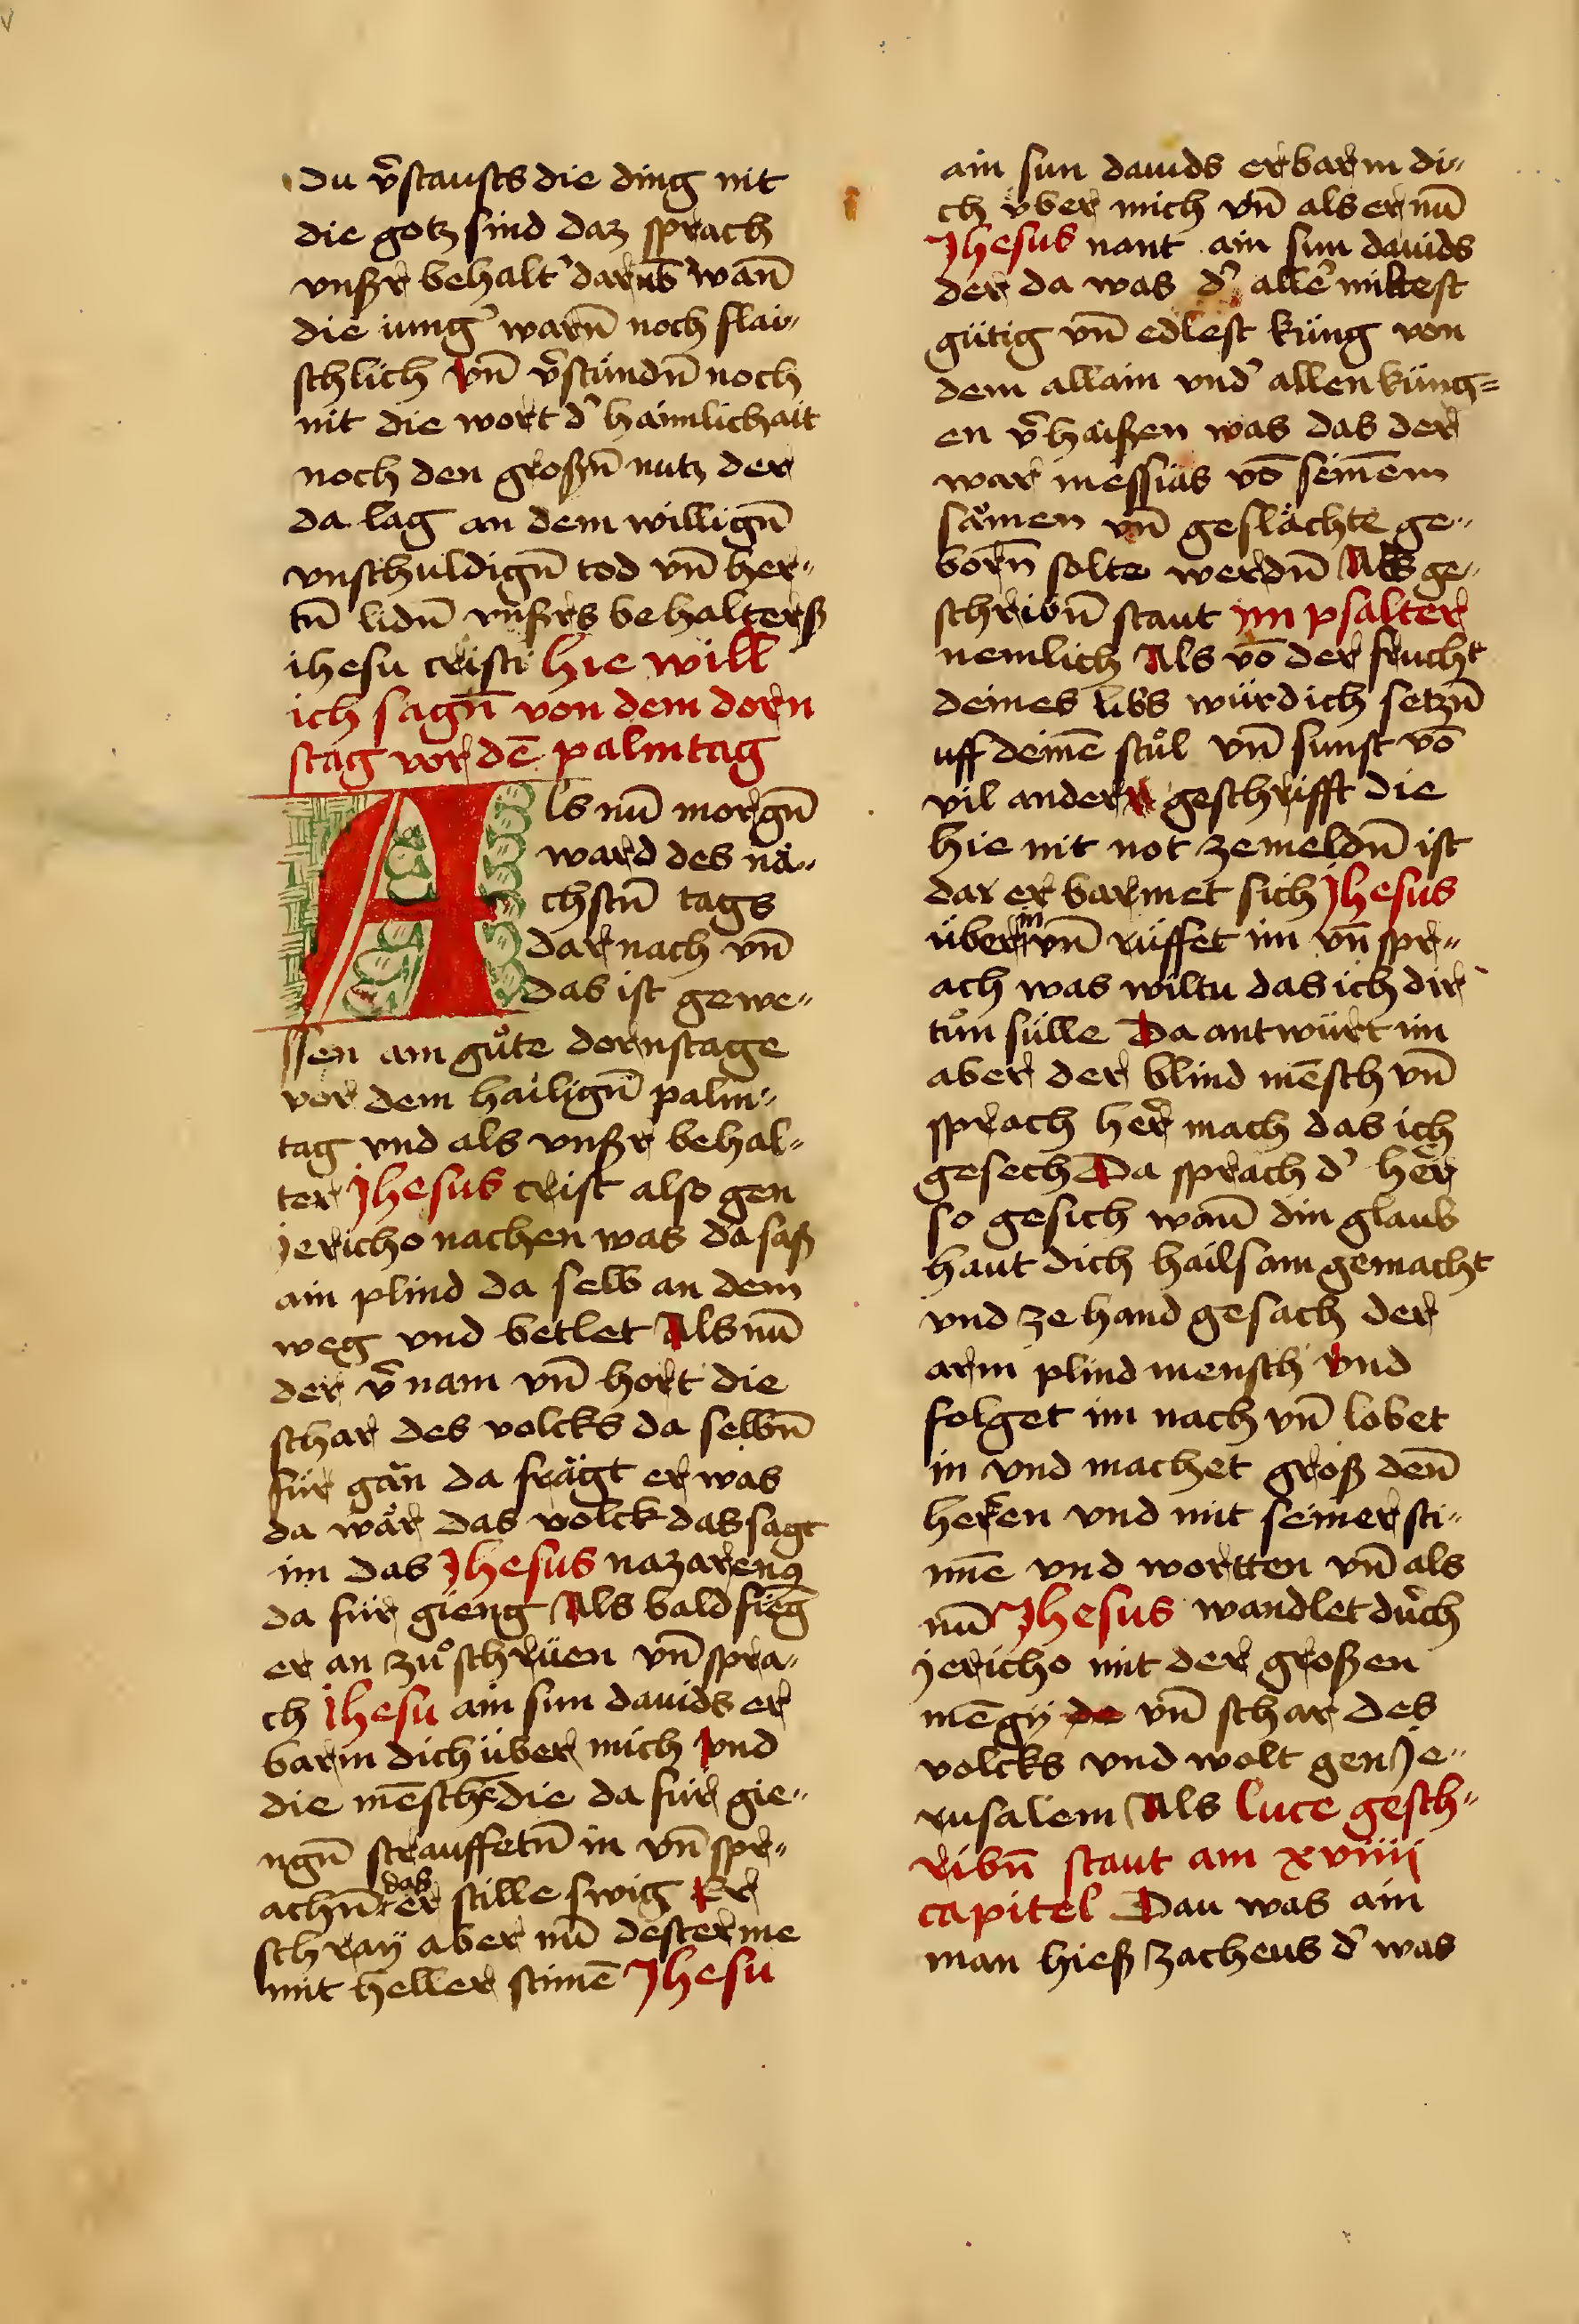 Du v̄stausts die ding nit
die gotz sind daz sprach
vnßr behalt' darub̄ wan̄
die iung' warn̄ noch flai„
schlich vn̄ v̄stündn̄ noch
nit die wort d' haimlichait
noch den großn̄ nutz der
da lag an dem willign̄
vnschuldign̄ tod vn̄ her„
tn̄ lidn̄ vnßrs behalterß
ihesu cristi hie will
ich sagn̄ von dem dorn
stag vor dē palmtag
Als nū morgn̄
ward des nä„
chstn̄ tags
dar nach vn̄
das ist gewe„
ssen am gůte dornstage
vor dem hailign̄ palm„
tag vnd als vnßr behal„
ter Jhesus crist also gen
jericho nachen was da saß
ain plind da selb an dem
weg vnd betlet Als nū
der v̄nam vn̄ hort die
schar des volcks da selbn̄
für gän da frägt er was
da wär das volck das sagt
im das Jhesus nazarenꝯ
da für gieng Als bald fieḡ
er an zů schrüen vn̄ spra„
ch Jhesu ain sun dauids er
barm dich über mich vnd
die mēschē die da für gie„
ngn̄ strauffetn̄ in vn̄ spr„
achn̄ das er stille swig Er
schray aber nū dester me
mit heller stimē Jhesu
ain sun dauids erbarm di„
ch vber mich vn̄ als er nū
Jhesus nant ain sun dauids
der da was d' alle' miltest
gütig vn̄ edlest küng von
dem allain vnd' allen küng=
en v̄haißen was das der
war messias vō seinem
sämen vn̄ geslächte ge„
born̄ solte werdn̄ Als ge„
schribn̄ staut im psalter
nemlich Als vō der frucht
deines libs würd ich setzn̄
uff deinē stůl vn̄ sunst vō
vil andern geschrifft die
hie nit not ze meldn̄ ist
dar er barmet sich Jhesus
über in vn̄ rüffet im vn̄ spr„
ach was wiltu das ich dir
tůn sülle Da antwürt im
aber der blind mēsch vn̄
sprach her mach das ich
gesech Da sprach d' her
so gesich wan̄ din glaub
haut dich hailsam gemacht
vnd ze hand gesach der
arm plind mensch vnd
folget im nach vn̄ lobet
in vnd machet groß den̄
herren vnd mit seiner sti„
mē vnd wortten vn̄ als
nū Jhesus wandlet durch
jericho mit der großen
mēgy de vn̄ schar des
volcks vnd wolt gen Je„
rusalem Als luce gesch„
ribn̄ staut am xviiij
capitel Dau was ain
man hieß zacheus d' was